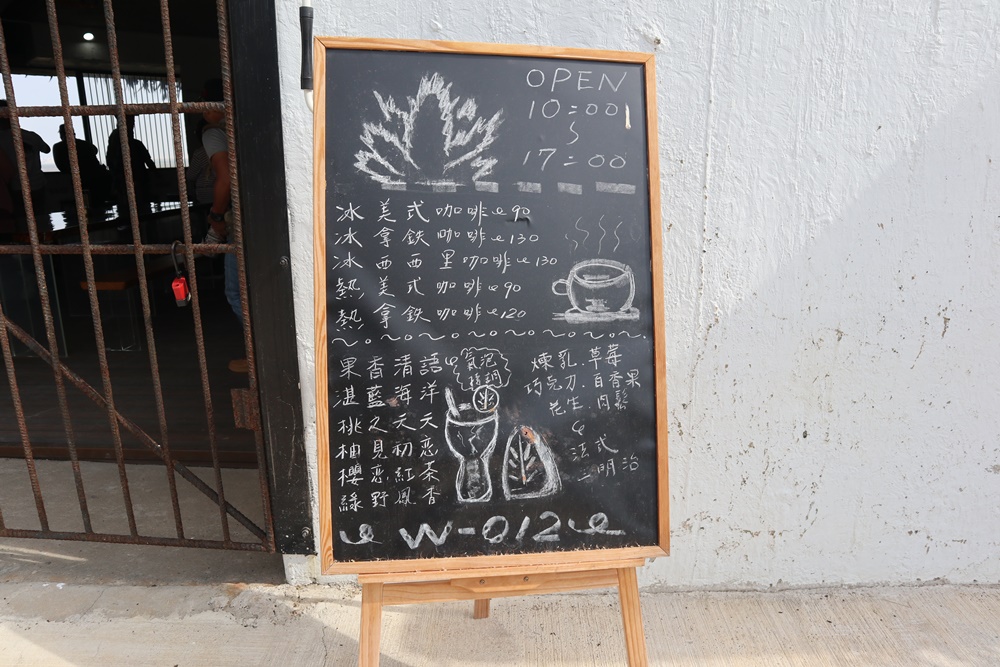 OPEN
10:00
~
17:00
冰美式咖啡 90
冰拿鐵咖啡 130
冰西西里咖啡 130
熱美式咖啡 90
熱拿鐵咖啡 120
果香清語
湛藍海洋
桃之夭夭
柚見初戀
櫻戀紅茶
綠野鳳香
氣泡
特調
煉乳.草莓
巧克力.百香果
花生.肉鬆
法式
三明治
W-012